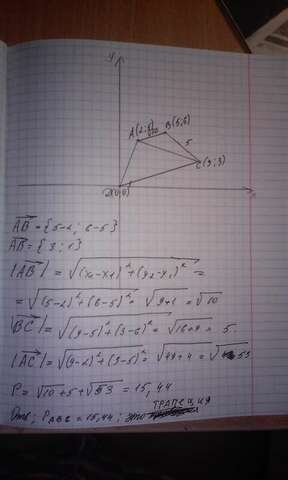 y
A(2;5) √10 B(5;6)
5
C(9;3)
O(0;0)
x
AB = {5-2; 6-5}
AB = {3; 1}
|AB| = √(x₂-x₁)² + (y₂-y₁)² =
= √(5-2)² + (6-5)² = √9+1 = √10
|BC| = √(9-5)² + (3-6)² = √16+9 = 5
|AC| = √(9-2)² + (3-5)² = √49+4 = √53
P = √10 + 5 + √53 = 15,44
ТРАПЕЦИЯ
Отв; P ABC = 15,44; это